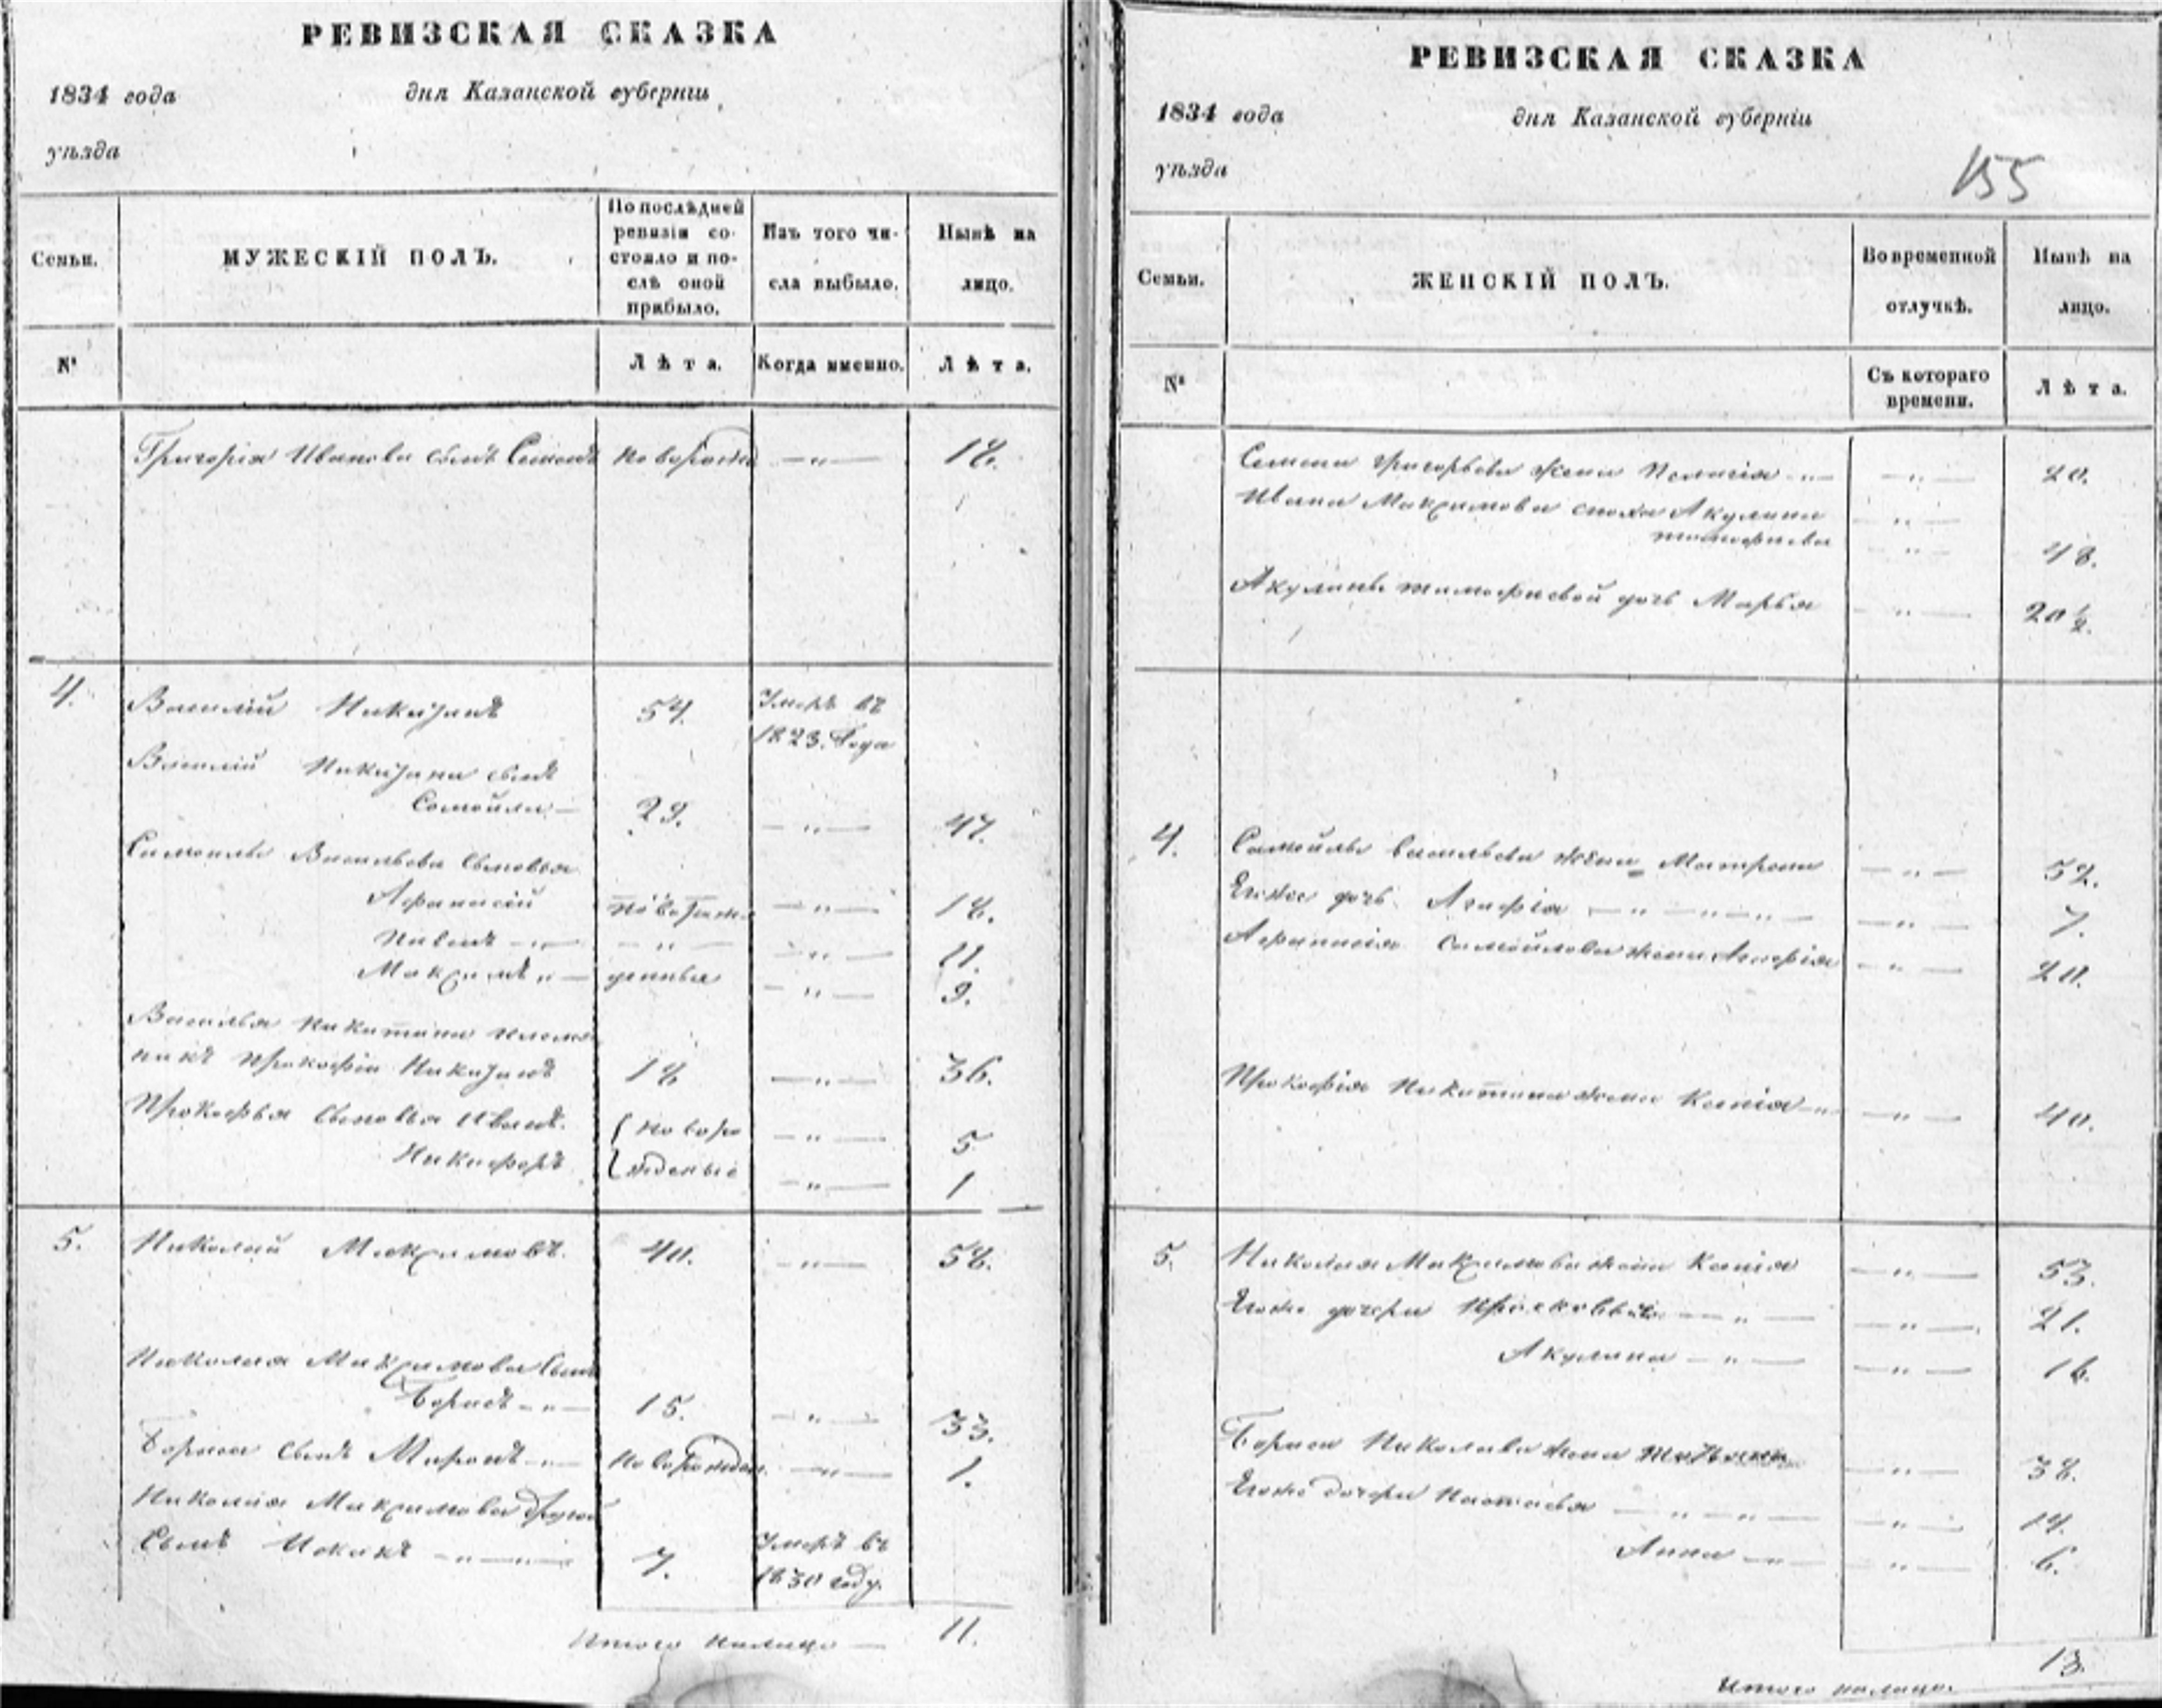 РЕВИЗСКАЯ СКАЗКА
1834 года дня Казанской губерніи
уѣзда
Семьи. МУЖЕСКІЙ ПОЛЪ. По послѣдней ревизіи состояло и послѣ оной прибыло. Изъ того числа выбыло. Нынѣ на лицо.
№ Лѣта. Когда именно. Лѣта.
Григорія Иванова сынъ Семенъ новорожден —"— 18.
4. Василій Никитинъ 54. Умеръ въ
1823. Года
Василій Никитина сынъ
Самойла — 29. —"— 47.
Самойлы Васильева сыновья
Афанасій новорож- —"— 18.
Павелъ —"— —"— —"— 11.
Максимъ "— денныя —"— 9.
Василья Никитина племян
никъ Прокофій Никитинъ 18 —"— 36.
Прокофья сыновья Иванъ. новоро —"— 5
Никифоръ жденые —"— 1
5. Николай Максимовъ. 40. —"— 58.
Николая Максимова сынъ
Борисъ —"— 15. —"— 33.
Бориса сынъ Миронъ —"— новорожден. —"— 1.
Николая Максимова другой
сынъ Исакъ —"— 7. Умеръ въ
1830 году.
Итого налицо — 11.
РЕВИЗСКАЯ СКАЗКА
1834 года дня Казанской губерніи
уѣзда
155
Семьи. ЖЕНСКІЙ ПОЛЪ. Во временной отлучкѣ. Нынѣ на лицо.
№ Съ котораго времени. Лѣта.
Семена Григорьева жена Пелагія —"— —"— 20.
Ивана Максимова сноха Акулина —"—
тимофеева —"— 48.
Акулины тимофеевой дочь Марья —"— 20 ½.
4. Самойлы Васильева жена Матрона —"— 52.
Егоже дочь Агафія —"—"— —"— 7.
Афанасія Самойлова жена Агафія —"— 20.
Прокофія Никитина жена Ксенія —"— —"— 40.
5. Николая Максимова жена Ксенія —"— 53.
Егоже дочери Прасковья —"— —"— 21.
Акулина —"— —"— 16.
Бориса Николаева жена —"— 38.
Егоже дочери Настасья —"—"— —"— 14.
Анна —"— —"— 6.
13.
Итого налицо.